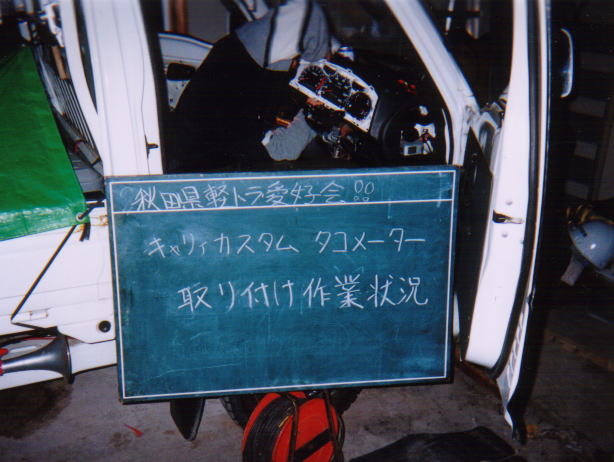 秋田県軽トラ愛好会!!
キャリィカスタム タコメーター
取り付け作業状況